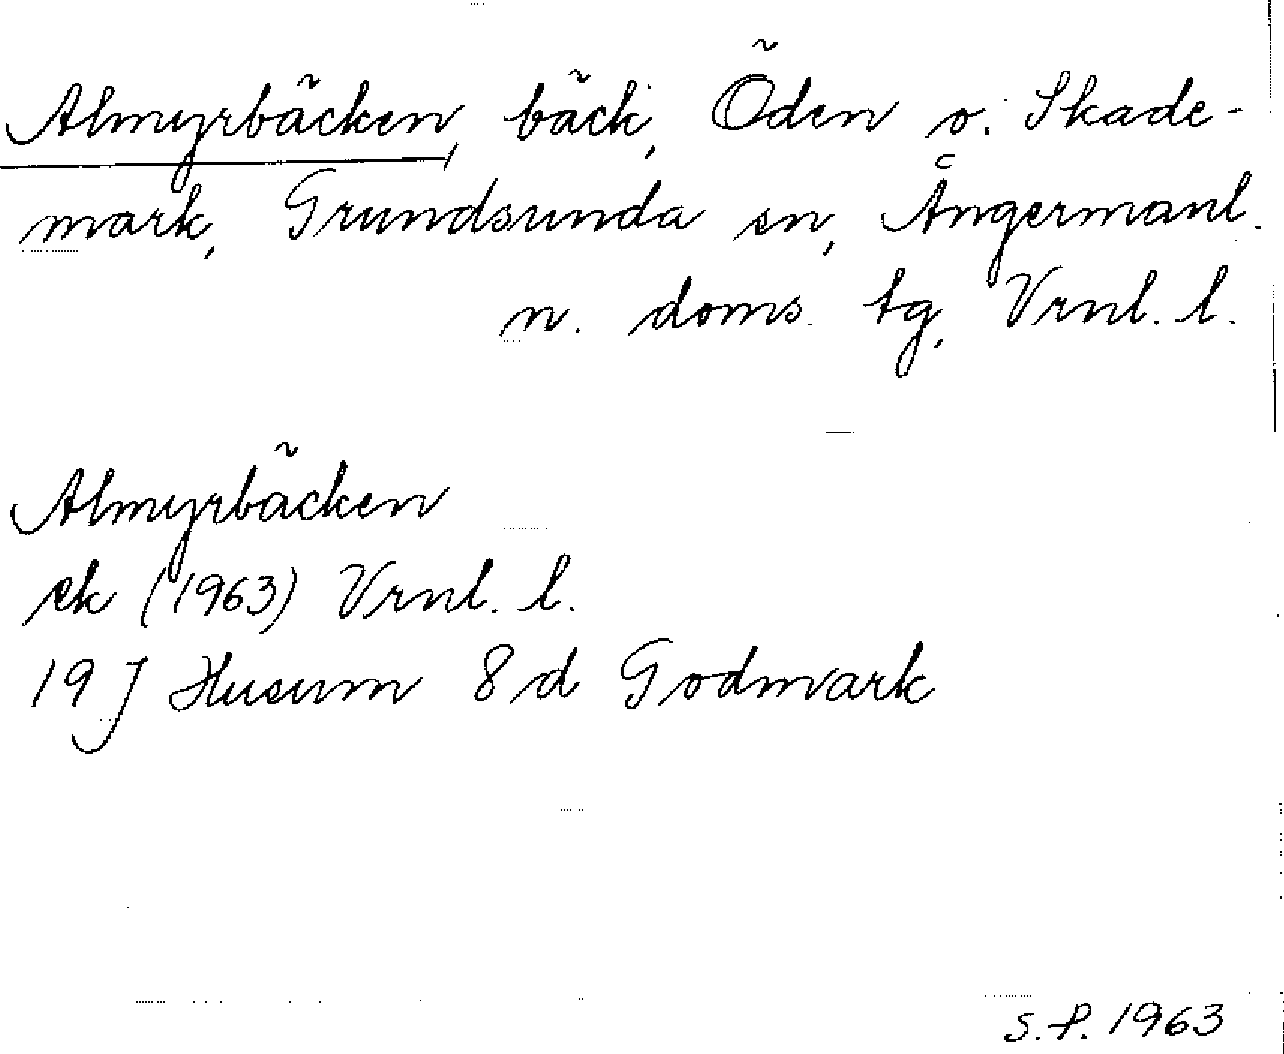 Almyrbäcken, bäck, Öden o. Skade-
mark, Grundsunda sn, Ångermanl.
n. doms. tg, Vrnl. l.
Almyrbäcken
ek (1963) Vrnl. l.
19 J Husum 8 d Godmark
S.P. 1963